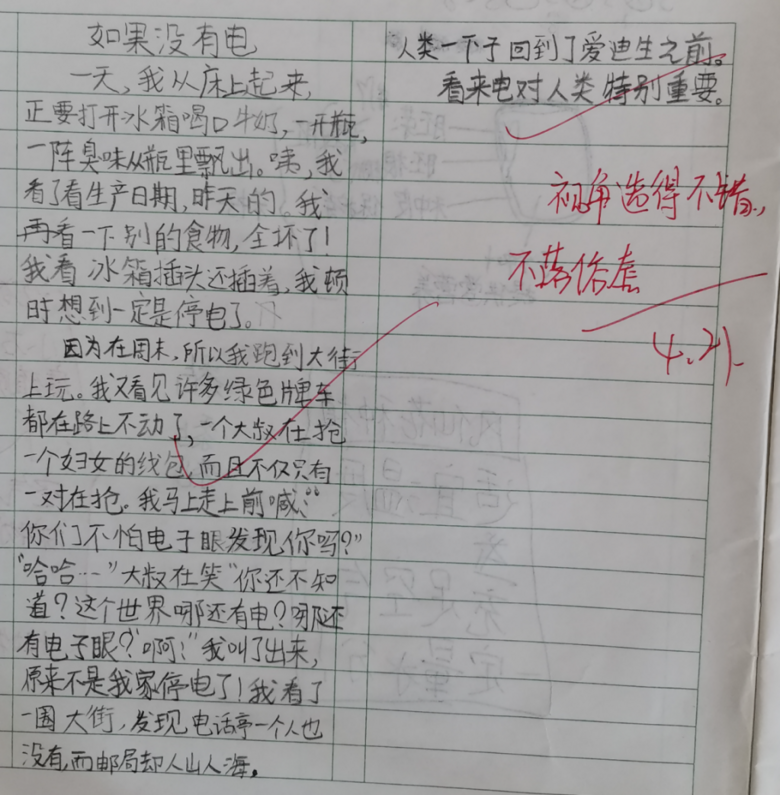 如果没有电
一天,我从床上起来,
正要打开冰箱喝口牛奶,一开瓶,
一阵臭味从瓶里飘出。咦,我
看了看生产日期,昨天的。我
再看一下别的食物,全坏了!
我看冰箱插头还插着,我顿
时想到一定是停电了。
因为在周末,所以我跑到大街
上玩。我又看见许多绿色牌车
都在路上不动了,一个大叔在抢
一个妇女的线包,而且不仅只有
一对在抢。我马上走上前喊:“
你们不怕电子眼发现你吗?”
“哈哈…”大叔在笑“你还不知
道?这个世界哪还有电?哪还
有电子眼?”“啊!”我叫了出来,
原来不是我家停电了!我看了
一圈大街,发现电话亭一个人也
没有,而邮局却人山人海。
人类一下子回到了爱迪生之前。
看来电对人类特别重要。
视角选得不错,
不落俗套
4.21.